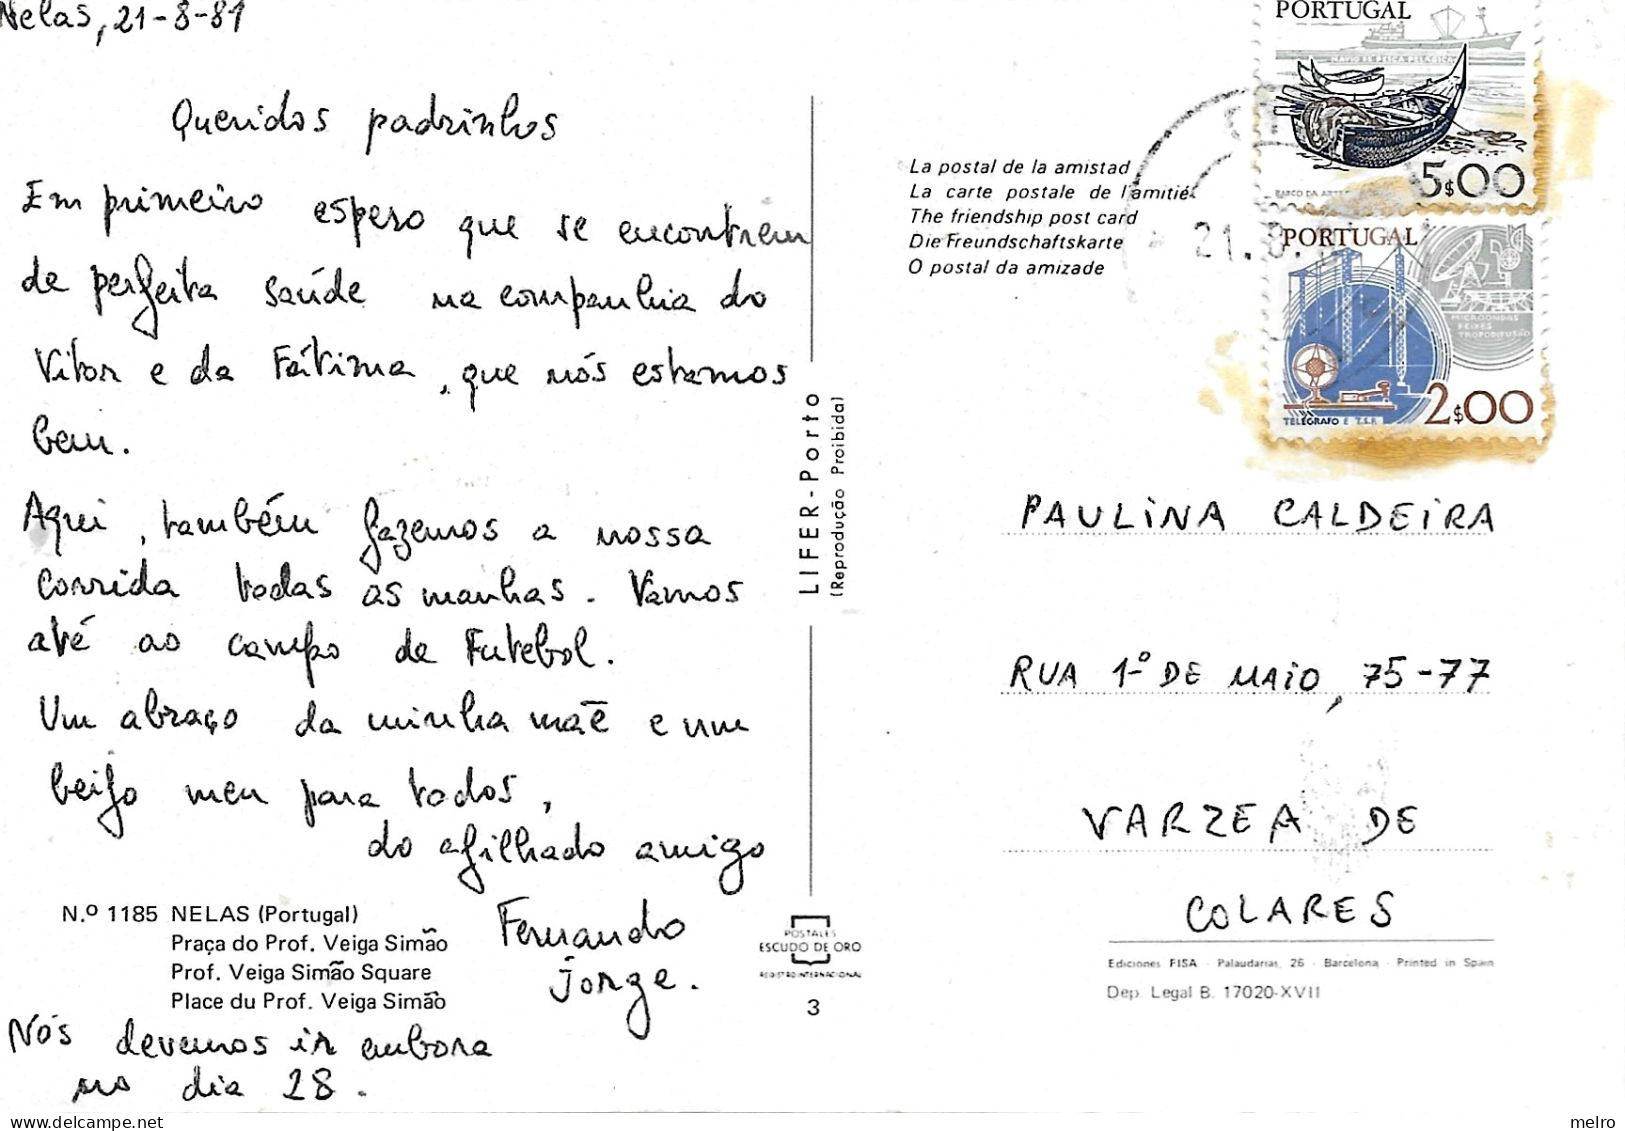 Nelas, 21-8-81
Queridos padrinhos
Em primeiro espero que se encontrem
de perfeita saúde na companhia do
Vitor e da Fátima, que nós estamos
bem.
Aqui, também fazemos a nossa
corrida todas as manhas. Vamos
até ao campo de Futebol.
Um abraço da minha mãe e um
beijo meu para todos,
do afilhado amigo
Fernando
Jorge.
Nós devemos ir embora
no dia 28.
N.º 1185 NELAS (Portugal)
Praça do Prof. Veiga Simão
Prof. Veiga Simão Square
Place du Prof. Veiga Simão
LIFER-Porto
(Reprodução Proibida)
POSTALES
ESCUDO DE ORO
REGISTRO INTERNACIONAL
3
La postal de la amistad
La carte postale de l'amitié
The friendship post card
Die Freundschaftskarte
O postal da amizade
PORTUGAL
NAVIO DE PESCA PELÁGICA
BARCO DA ARTE
5$00
21.8.
PORTUGAL
MICROONDAS
FEIXES
TROPODIFUSÃO
TELÉGRAFO E T.S.F.
2$00
PAULINA CALDEIRA
RUA 1º DE MAIO, 75-77
VARZEA DE
COLARES
Ediciones FISA - Palaudarias, 26 - Barcelona - Printed in Spain
Dep. Legal B. 17020-XVII
melro